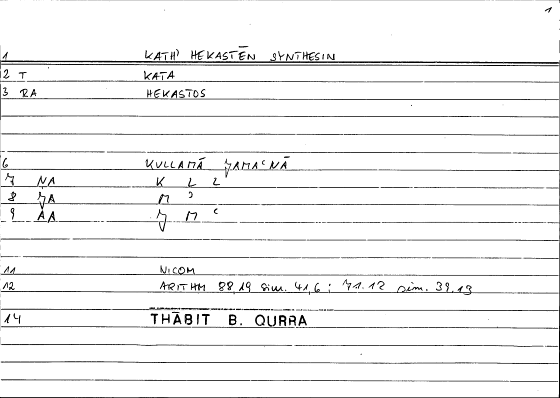 1
1 KATH' HEKASTĒN SYNTHESIN
2 T KATA
3 RA HEKASTOS
6 KULLAMĀ ǦAMAʿNĀ
7 NA K L L
8 ǦA M ʾ
9 AA Ǧ M ʿ
11 NICOM
12 ARITHM 88,19 sim. 41,6; 71.12 sim. 39.13
14 THĀBIT B. QURRA